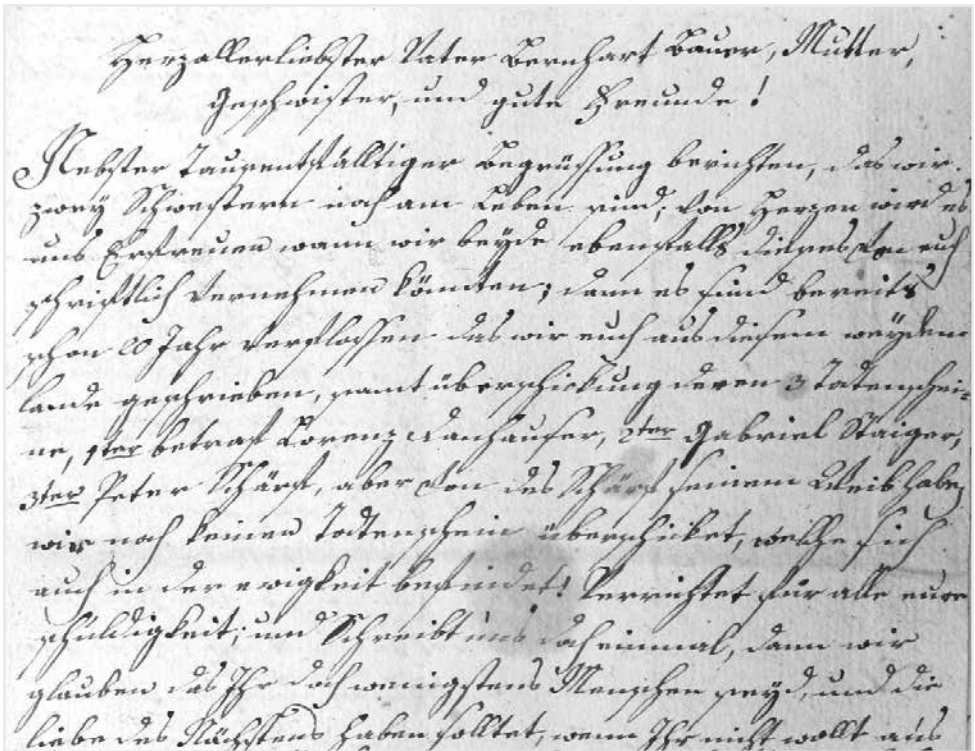 Herzallerliebster Vater Bernhart Bauer, Mutter,
Geschwister, und gute Freunde!
Nebster Tausentfälltiger Begrüssung berichten, das wir
zwey Schwestern noch am Leben sind; von Herzen wird es
uns Erfreuen wann wir beyde ebenfalls dieses von euch
schriftlich vernehmen könnten; dann es sind bereits
schon 20 Jahr verflossen das wir euch aus diesem weyden
lande geschrieben, samt überschickung deren 3 Todenschei-
ne, 1ter betraf Lorenz Danhauser, 2ter Gabriel Staiger,
3ter Peter Schärf, aber von des Schärf seinem Weib haben
wir noch keinen Todenschein überschicket, welche sich
auch in der ewigkeit befindet! Verrichtet für alle eure
schuldigkeit; und Schreibt uns doch einmal, dann wir
glauben das Ihr doch wenigstens Menschen seyd, und die
liebe des Nächstens haben solltet, wenn Ihr nicht wollt aus